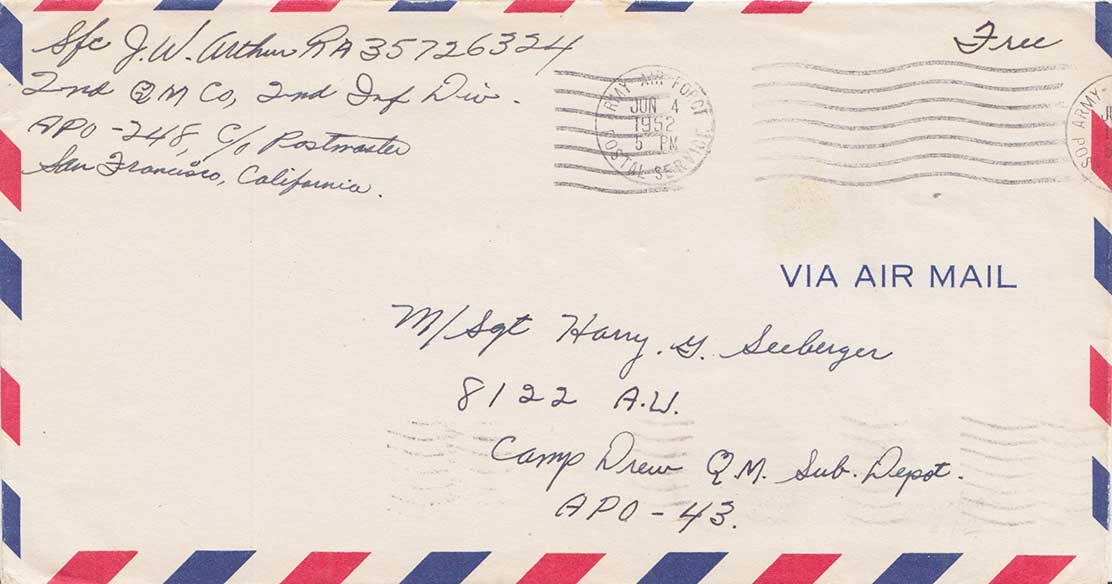 Sfc J.W. Arthur RA35726324
2nd QM Co, 2nd Inf Div.
APO-248, c/o Postmaster
San Francisco, California.
Free
ARMY-AIR FORCE
JUN 4
1952
5 PM
POSTAL SERVICE
ARMY
POS
VIA AIR MAIL
M/Sgt Harry. G. Seeberger
8122 A.U.
Camp Drew Q.M. Sub. Depot.
APO-43.